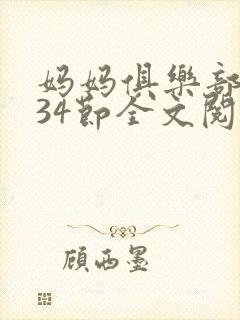 妈妈俱樂部
34節全文閱
顾西墨